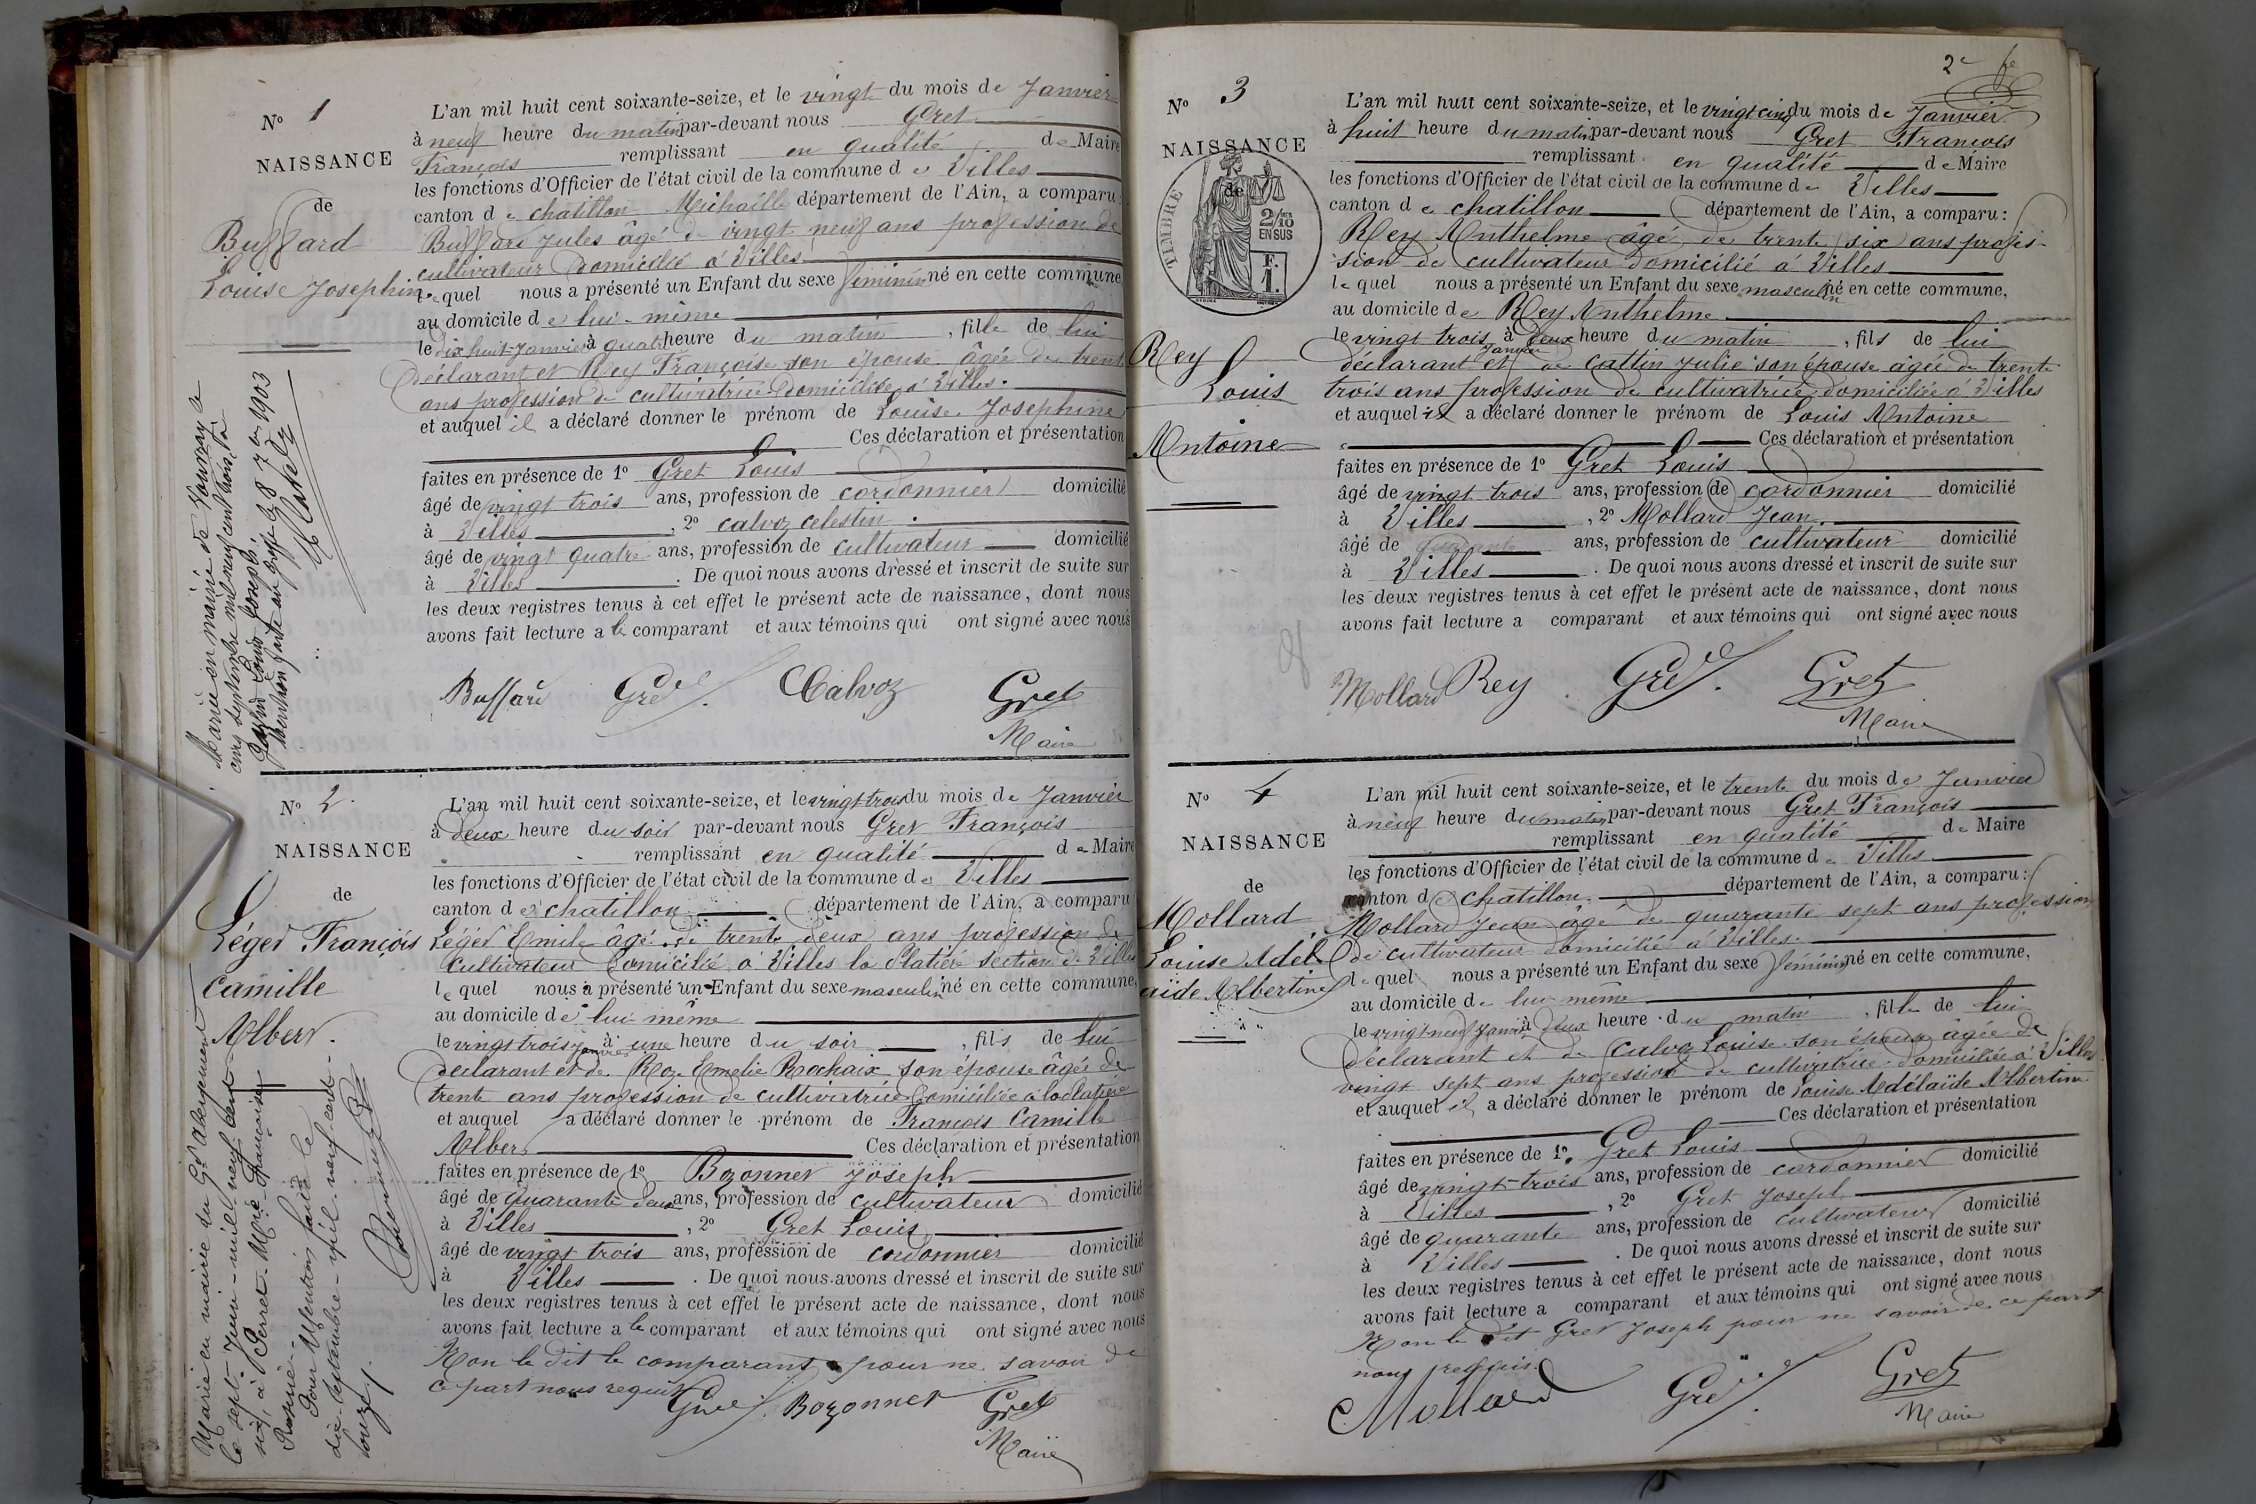 N° 1
NAISSANCE
de
Buffard
Louise Josephine
L'an mil huit cent soixante-seize, et le vingt du mois de Janvier
à neuf heure du matin par-devant nous Gret
François remplissant en qualité de Maire
les fonctions d'Officier de l'état civil de la commune de Villes
canton de chatillon Michaille département de l'Ain, a comparu:
Buffard Jules âgé de vingt neuf ans profession de
cultivateur domicilié à Villes
lequel nous a présenté un Enfant du sexe féminin né en cette commune
au domicile de lui-même
le dix huit Janvier à quatre heure du matin, fille de lui
déclarant et Rey Françoise son épouse âgée de trente
ans profession de cultivatrice domiciliée à Villes.
et auquel il a déclaré donner le prénom de Louise Josephine
Ces déclaration et présentation
faites en présence de 1° Gret Louis
âgé de vingt trois ans, profession de cordonnier domicilié
à Villes, 2° calvoz celestin
âgé de vingt quatre ans, profession de cultivateur domicilié
à Villes. De quoi nous avons dressé et inscrit de suite sur
les deux registres tenus à cet effet le présent acte de naissance, dont nous
avons fait lecture a le comparant et aux témoins qui ont signé avec nous
Buffard Calvoz Gret
Maire
Marié en mairie de Vouvray le
cinq septembre mil neuf cent trois à
Louis Joseph.
Mention faite au greffe le 8 7bre 1903
N° 2
NAISSANCE
de
Léger François
Camille
Albert.
L'an mil huit cent soixante-seize, et le vingt trois du mois de Janvier
à deux heure du soir par-devant nous Gret François
remplissant en qualité de Maire
les fonctions d'Officier de l'état civil de la commune de Villes
canton de chatillon département de l'Ain, a comparu
Léger Emile âgé de trente deux ans profession de
cultivateur domicilié à Villes la Platière section de Villes
lequel nous a présenté un Enfant du sexe masculin né en cette commune,
au domicile de lui même
le vingt trois janvier à une heure du soir, fils de lui
déclarant et de Roz Emelie Rochaix son épouse âgée de
trente ans profession de cultivatrice domiciliée à la Platière
et auquel a déclaré donner le prénom de François Camille
Albert Ces déclaration et présentation
faites en présence de 1° Bozonnet Joseph
âgé de quarante deux ans, profession de cultivateur domicilié
à Villes, 2° Gret Louis
âgé de vingt trois ans, profession de cordonnier domicilié
à Villes. De quoi nous avons dressé et inscrit de suite sur
les deux registres tenus à cet effet le présent acte de naissance, dont nous
avons fait lecture a le comparant et aux témoins qui ont signé avec nous
Non le dit le comparant pour ne savoir de
ce part nous requis
Bozonnet Gret
Maire
Marié en mairie du Gd Abergement
le sept Juin mil neuf cent
six, à Perret Marie Françoise
Rosine.
Pour Mention faite le
dix Septembre mil neuf cent
douze.
2e fe
N° 3
NAISSANCE
de
TIMBRE
2/10 EN SUS
F. 1.
Rey
Louis
Antoine
L'an mil huit cent soixante-seize, et le vingt cinq du mois de Janvier
à huit heure du matin par-devant nous Gret François
remplissant en qualité de Maire
les fonctions d'Officier de l'état civil de la commune de Villes
canton de chatillon département de l'Ain, a comparu:
Rey Anthelme âgé de trente six ans profes-
sion de cultivateur domicilié à Villes
lequel nous a présenté un Enfant du sexe masculin né en cette commune,
au domicile de Rey Anthelme
le vingt trois janvier à deux heure du matin, fils de lui
déclarant et de Cattin Julie son épouse âgée de trente
trois ans profession de cultivatrice domiciliée à Villes
et auquel il a déclaré donner le prénom de Louis Antoine
Ces déclaration et présentation
faites en présence de 1° Gret Louis
âgé de vingt trois ans, profession de cordonnier domicilié
à Villes, 2° Mollard Jean
âgé de quarante ans, profession de cultivateur domicilié
à Villes. De quoi nous avons dressé et inscrit de suite sur
les deux registres tenus à cet effet le présent acte de naissance, dont nous
avons fait lecture a comparant et aux témoins qui ont signé avec nous
Mollard Rey Gret
Maire
N° 4
NAISSANCE
de
Mollard
Louise Adél
aïde Albertine
L'an mil huit cent soixante-seize, et le trente du mois de Janvier
à neuf heure du matin par-devant nous Gret François
remplissant en qualité de Maire
les fonctions d'Officier de l'état civil de la commune de Villes
canton de chatillon département de l'Ain, a comparu:
Mollard Jean âgé de quarante sept ans profession
de cultivateur domicilié à Villes.
lequel nous a présenté un Enfant du sexe féminin né en cette commune,
au domicile de lui même
le vingt neuf Janvier à deux heure du matin, fille de lui
déclarant et de Calvoz Louise son épouse âgée de
vingt sept ans profession de cultivatrice domiciliée à Villes
et auquel il a déclaré donner le prénom de Louise Adélaïde Albertine
Ces déclaration et présentation
faites en présence de 1° Gret Louis
âgé de vingt-trois ans, profession de cordonnier domicilié
à Villes, 2° Gret Joseph
âgé de quarante ans, profession de cultivateur domicilié
à Villes. De quoi nous avons dressé et inscrit de suite sur
les deux registres tenus à cet effet le présent acte de naissance, dont nous
avons fait lecture a comparant et aux témoins qui ont signé avec nous
Non le dit Gret Joseph pour ne savoir de ce part
nous requis.
Mollard Gret
Maire